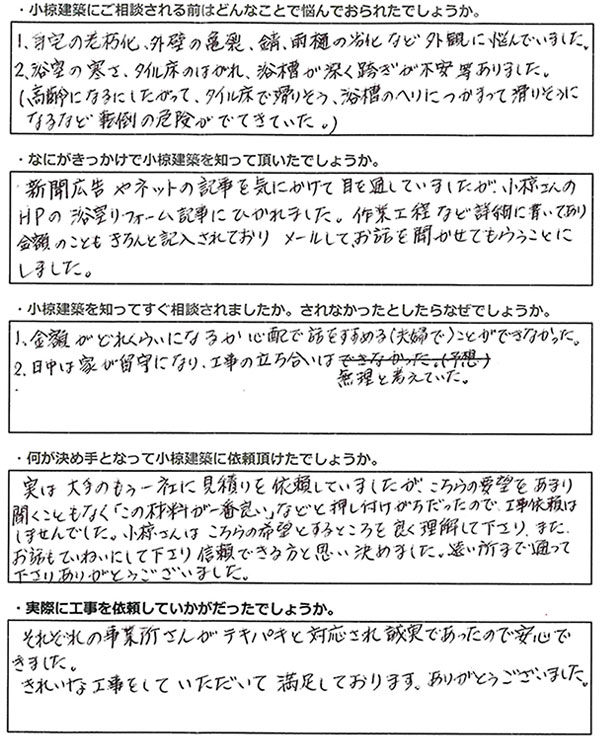 ・小椋建築にご相談される前はどんなことで悩んでおられたでしょうか。
1、自宅の老朽化、外壁の亀裂、錆、雨樋の劣化など外観に悩んでいました。
2、浴室の寒さ、タイル床のはがれ、浴槽が深く跨ぎが不安等ありました。
(高齢になるにしたがって、タイル床で滑りそう、浴槽のヘリにつかまって滑りそうに
なるなど転倒の危険がでてきていた。)
・なにがきっかけで小椋建築を知って頂いたでしょうか。
新聞広告やネットの記事を気にかけて目を通していましたが、小椋さんの
HPの浴室リフォーム記事にひかれました。作業工程など詳細に書いてあり
金額のこともきちんと記入されており メールして、お話を聞かせてもらうことに
しました。
・小椋建築を知ってすぐ相談されましたか。されなかったとしたらなぜでしょうか。
1、金額がどれくらいになるか心配で話をすすめる(夫婦で)ことができなかった。
2、日中は家が留守になり、工事の立ち合いはできなかった。(予想)
無理と考えていた。
・何が決め手となって小椋建築に依頼頂けたでしょうか。
実は大手のもう一社に見積りを依頼していましたが、こちらの要望をあまり
聞くこともなく「この材料が一番良い」などと押し付けがちだったので、工事依頼は
しませんでした。小椋さんは こちらの希望とするところを良く理解して下さり、また、
お話もていねいにして下さり信頼できる方と思い決めました。遠い所まで通って
下さりありがとうございました。
・実際に工事を依頼していかがだったでしょうか。
それぞれの事業所さんがテキパキと対応され誠実であったので安心で
きました。
きれいな工事をしていただいて満足しております。ありがとうございました。